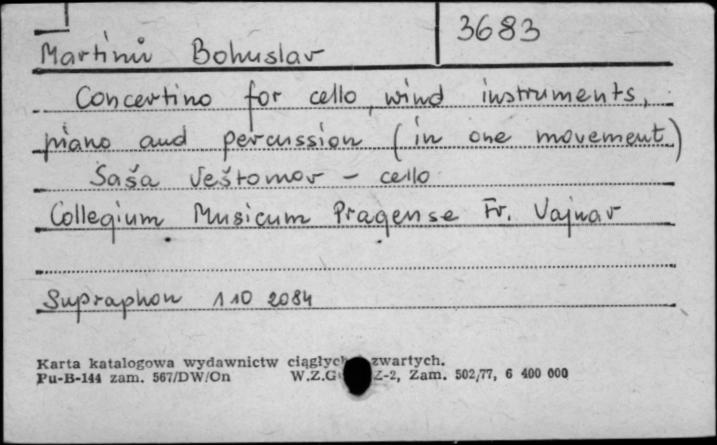 3683
Martinů Bohuslav
Concertino for cello, wind instruments,
piano and percussion (in one movement)
Saša Veštomov - cello
Collegium Musicum Pragense Fr. Vajnar
Supraphon 110 2084
Karta katalogowa wydawnictw zwartych.
Pu-B-144 zam. 567/DW/On Z-2, Zam. 502/77, 6 400 000